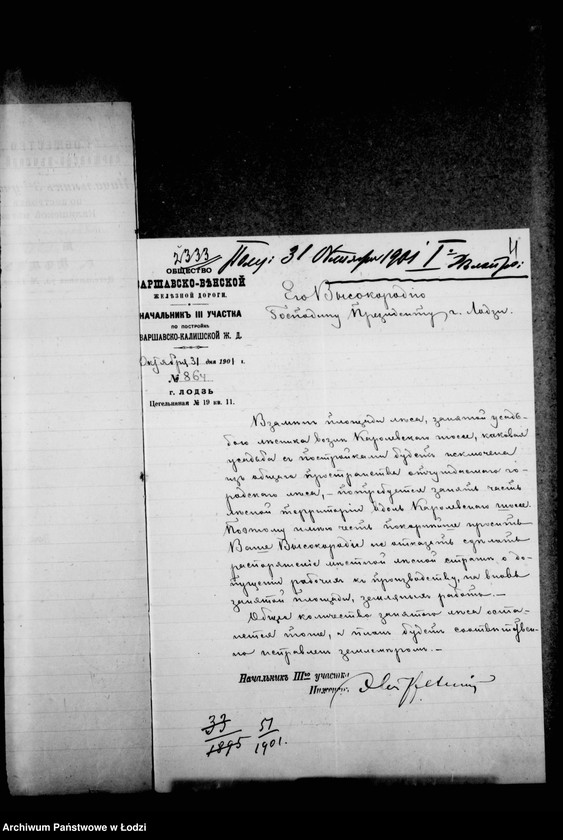 2333 Полу: 31 Октября 1901 I
4
ОБЩЕСТВО
ВАРШАВСКО-ВѢНСКОЙ
ЖЕЛѢЗНОЙ ДОРОГИ.
НАЧАЛЬНИКЪ III УЧАСТКА
ПО ПОСТРОЙКѢ
ВАРШАВСКО-КАЛИШСКОЙ Ж. Д.
Октября 31 дня 1901 г.
№ 864
Г. ЛОДЗЬ
Цегельнаная № 19 кв. 11.
Его Высокородію
Господину Президенту г. Лодзи.
Взамѣнъ площади лѣса, занятой усадь-
бою лѣсника возлѣ Каролевскаго шоссе, каковая
усадьба съ постройками будетъ исключена
изъ общаго пространства отчуждаемаго го-
родскаго лѣса, – потребуется занять часть
лѣсной территоріи вдоль Каролевскаго шоссе
Поэтому имѣю честь покорнѣйше просить
Ваше Высокородіе не отказать сдѣлать
распоряженіе мѣстной лѣсной стражѣ о до-
пущеніи рабочихъ къ производству, на вновь
занятой площади, земляныхъ работъ. –
Общее количество занятаго лѣса оста-
нется тоже, а планъ будетъ соотвѣтствен-
но исправленъ землемѣромъ. –
Начальникъ III го участка
Инженеръ
33/1895 51/1901.
Archiwum Państwowe w Łodzi